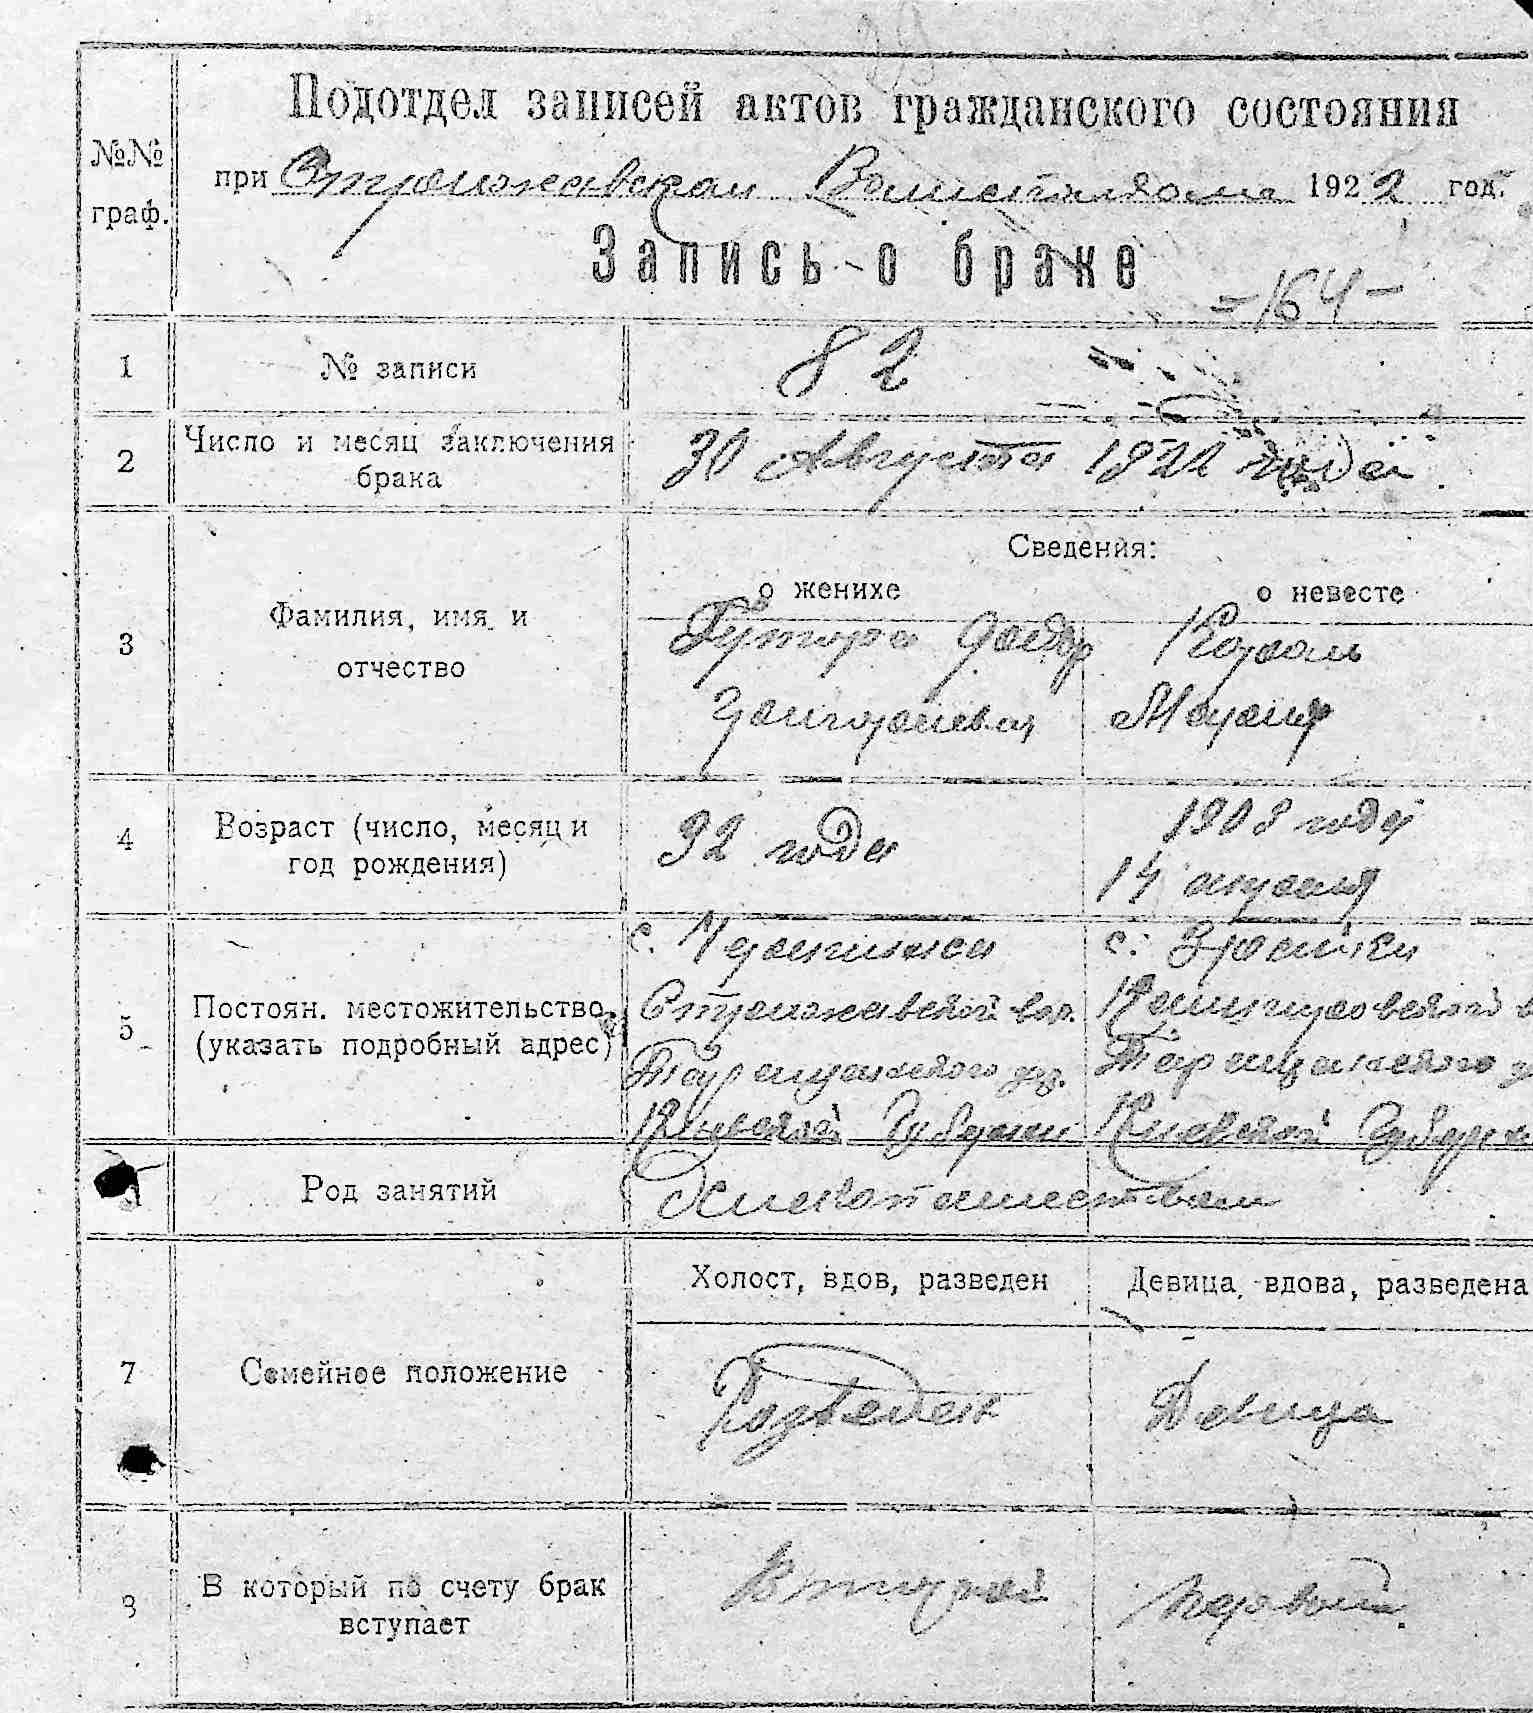 №№ граф.
Подотдел записей актов гражданского состояния
при Стрижавском 1922 год.
Запись о браке
-164-
1 № записи 82
2 Число и месяц заключения брака
30 Августа 1922 года
Сведения:
о женихе о невесте
3 Фамилия, имя и
отчество
Федор Коваль
Григориевич Мария
4 Возраст (число, месяц и
год рождения)
32 года 1903 года
14 апреля
5 Постоян. местожительство
(указать подробный адрес)
с. с.
вол.
Таращанского уез. Таращанского у
Киевской Губернии Киевской Губерн
Род занятий
Хлебопашеством
Холост, вдов, разведен Девица, вдова, разведена
7 Семейное положение
Разведен Девица
8 В который по счету брак
вступает
Второй первый.